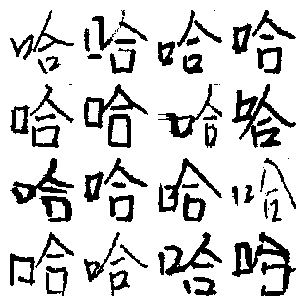 哈哈哈哈
哈哈哈哈
哈哈哈哈
哈哈哈哈